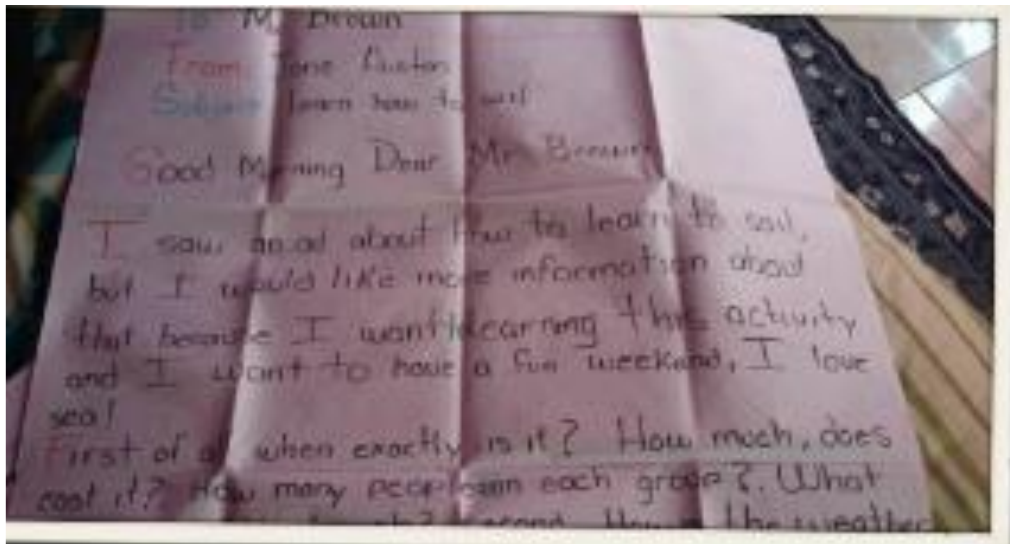 To Mr Brown
From Jane
Subject learn how to sail
Good Morning Dear Mr Brown
I saw an ad about how to learn to sail,
but I would like more information about
that because I want learning this activity
and I want to have a fun weekend, I love
sea!
First of all when exactly is it? How much, does
cost it? How many people in each group?. What
second. How is the weather